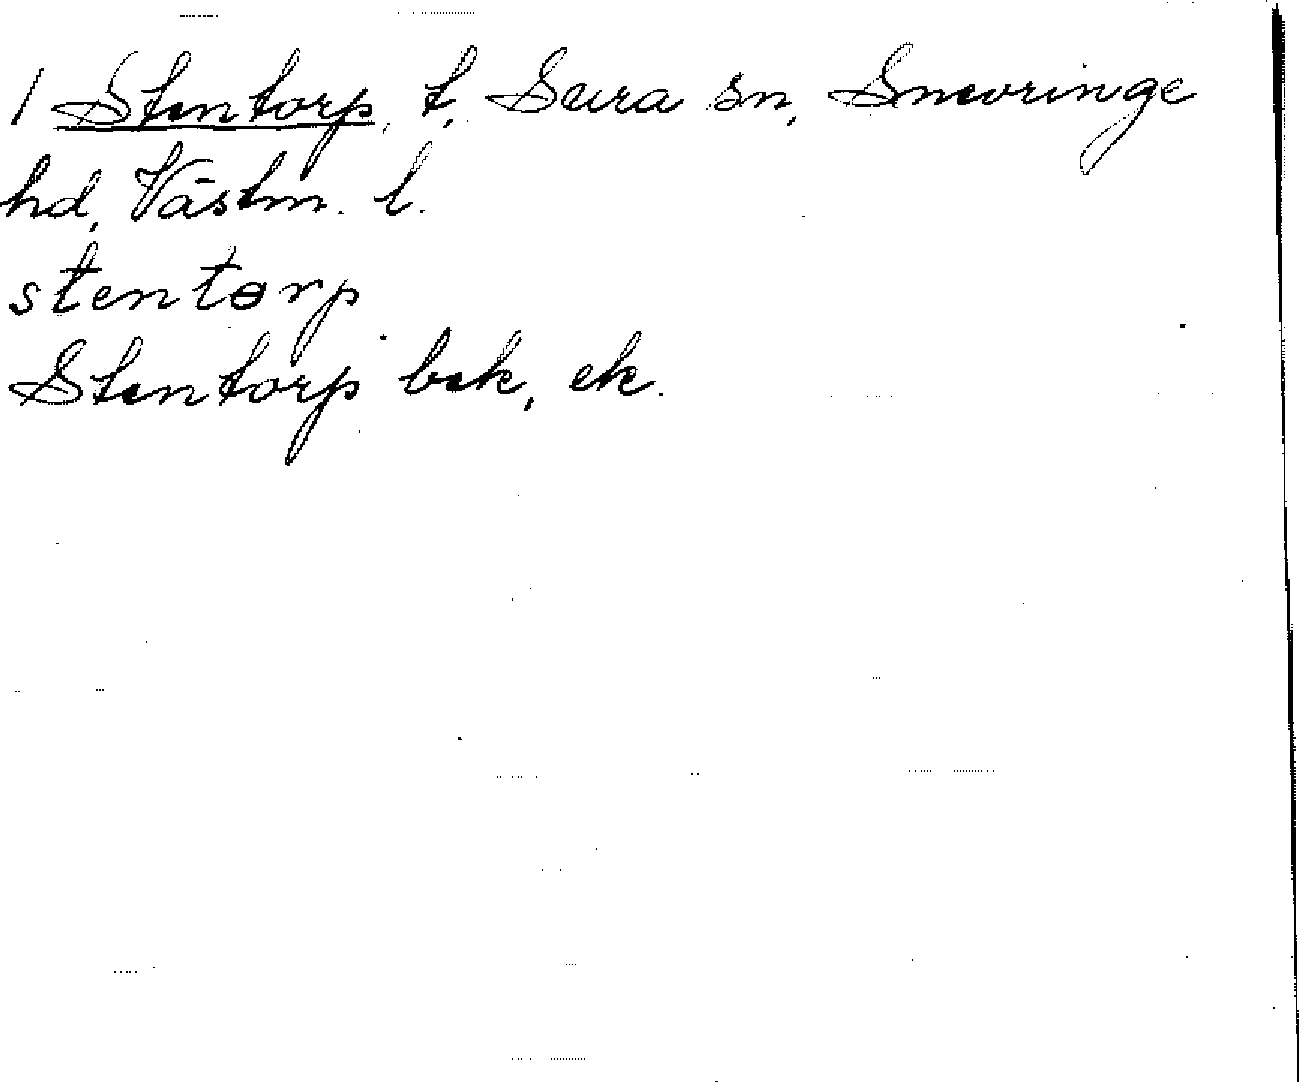 1 Stentorp, t, Sura sn, Snevringe
hd, Västm. l.
stentɵrp
Stentorp bek, ek.